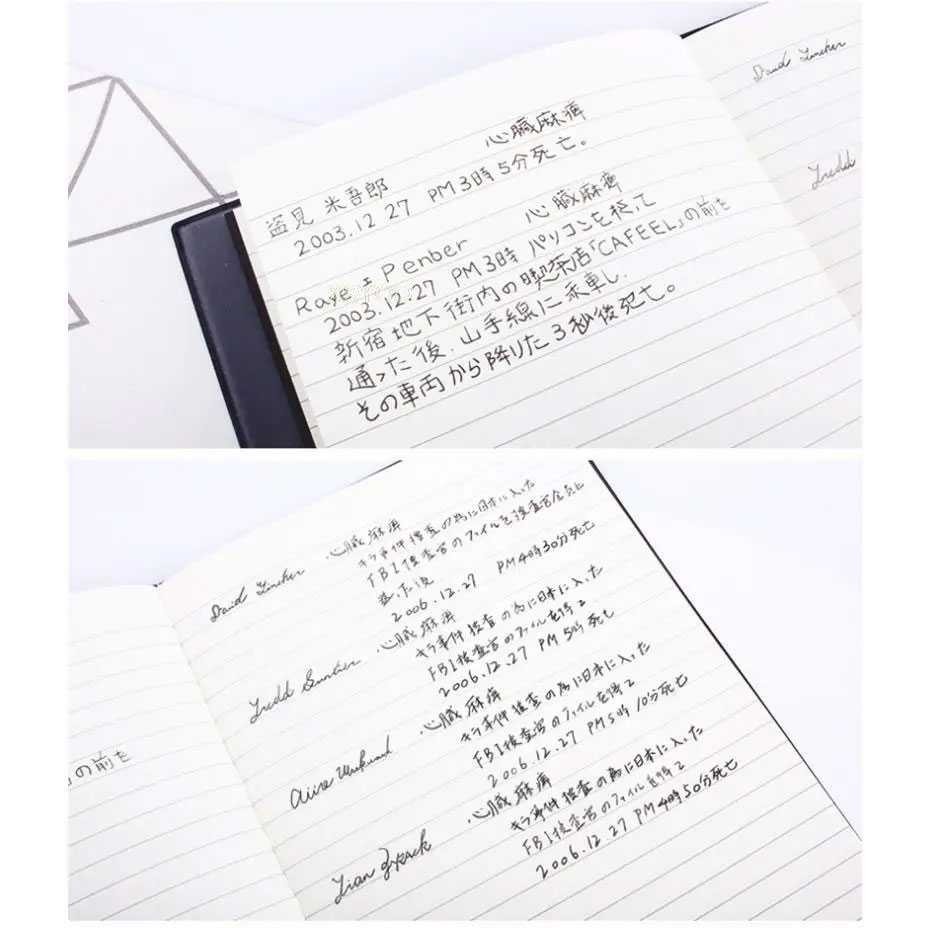 David
心臓麻痺
盗見 米吾郎
2003.12 27 PM3時5分死亡。
心臓麻痺
Raye Penber
2003.12.27 PM3時 パソコンを
新宿地下街内の喫茶店「CAFEEL」の前を
通った後、山手線に乗車し
その車両から降りた3秒後死亡。
David 心臓麻痺
キラ事件捜査の為に日本に入った
FBI捜査官のファイルを
た後
2006.12.27 PM4時30分死亡
心臓麻痺
キラ事件捜査の為に日本に入った
FBI捜査官のファイルを得て
2006.12.27 PM5時死亡
心臓麻痺
キラ事件捜査の為に日本に入った
FBI捜査官のファイルを得て
2006.12.27 PM5時10分死亡
心臓麻痺
キラ事件捜査の為に日本に入った
FBI捜査官のファイルを得て
2006.12.27 PM4時50分死亡
の前を